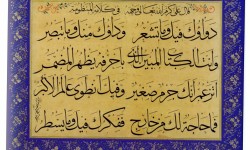 قال علي كرم الله تعالى وجهه
دواؤك فيك وما تشعر وداؤك منك وما تبصر
وأنت الكتاب المبين الذي بأحرفه يظهر المضمر
أتزعم أنك جرم صغير وفيك انطوى العالم الأكبر
فما حاجة لك من خارج وفكرك فيك وما يسطر